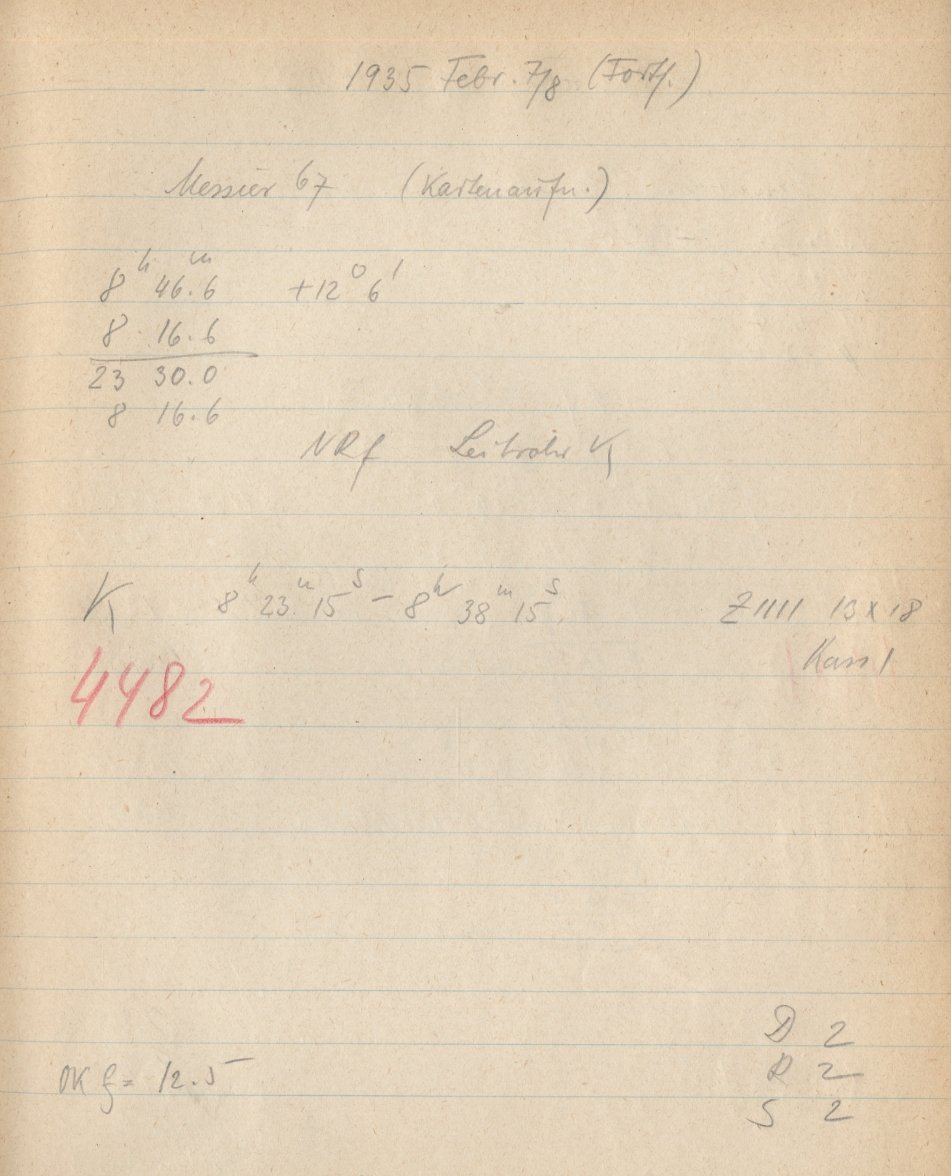 1935 Febr. 7/8 (Forts.)
Messier 67 (Kartenaufn.)
8h 46m.6 +12° 6'
8 16.6
23 30.0
8 16.6
NRf Leitrohr K
K 8h 23m 15s – 8h 38m 15s. Z 1111 13 x 18
Kass 1
4482
D 2
R 2
OK f = 12.5
S 2